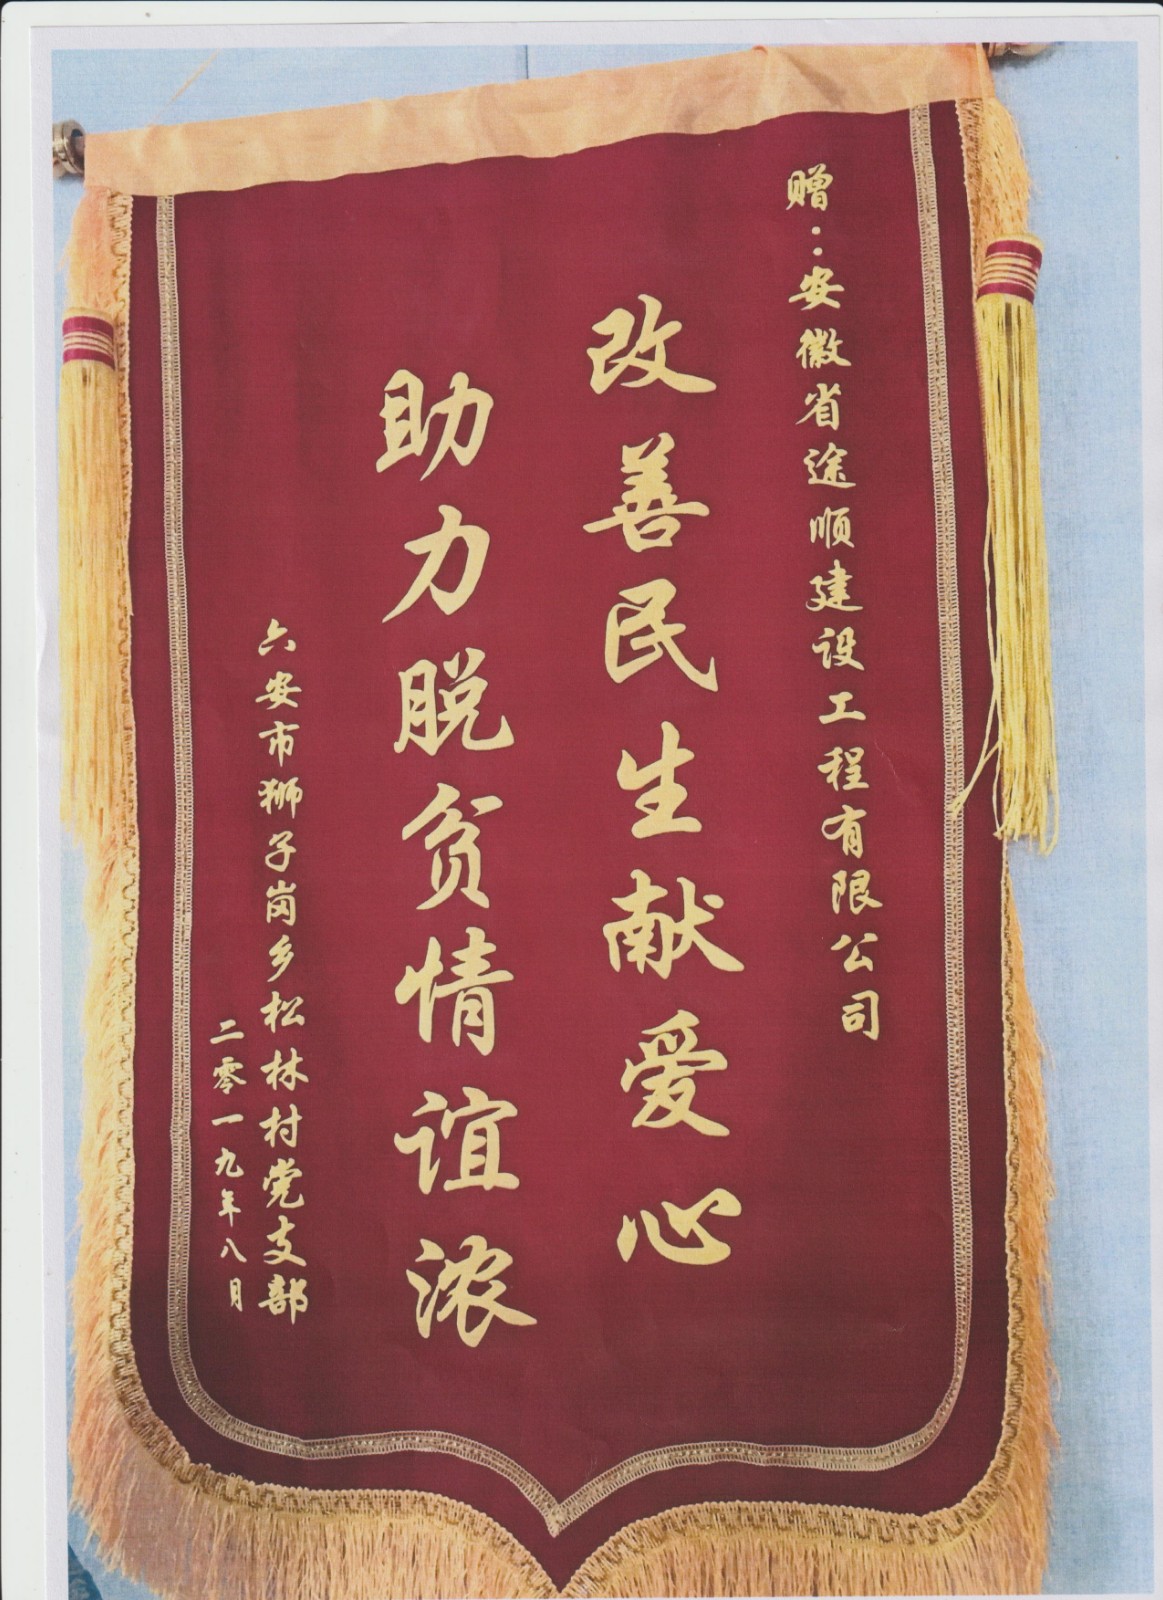 赠：安徽省途顺建设工程有限公司
改善民生献爱心
助力脱贫情谊浓
六安市狮子岗乡松林村党支部
二零一九年八月